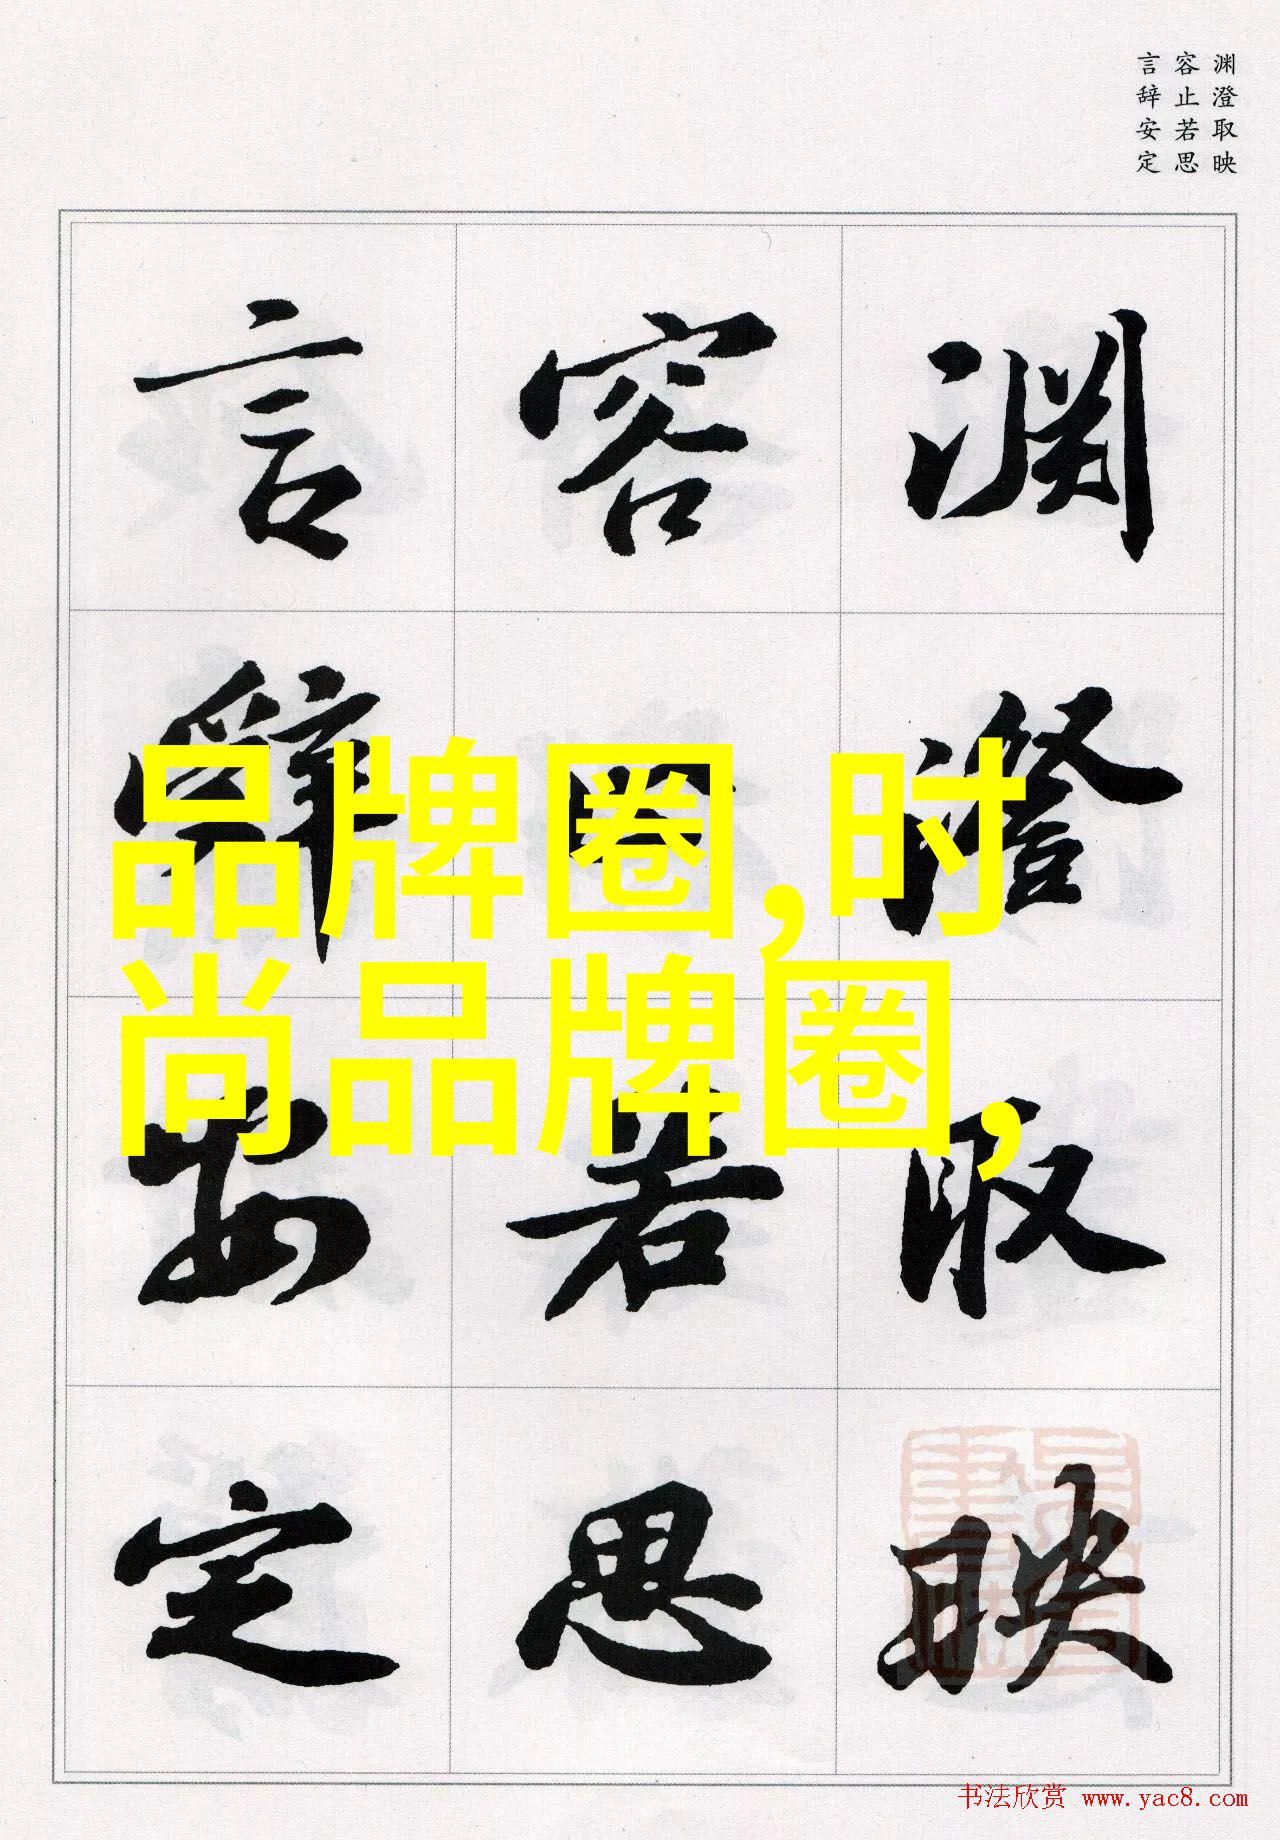 渊澄取映
容止若思
言辞安定
渊澄取映
容止若思
言辞安定
品牌圈,时
尚品牌圈,
书法欣赏 www.yac8.com